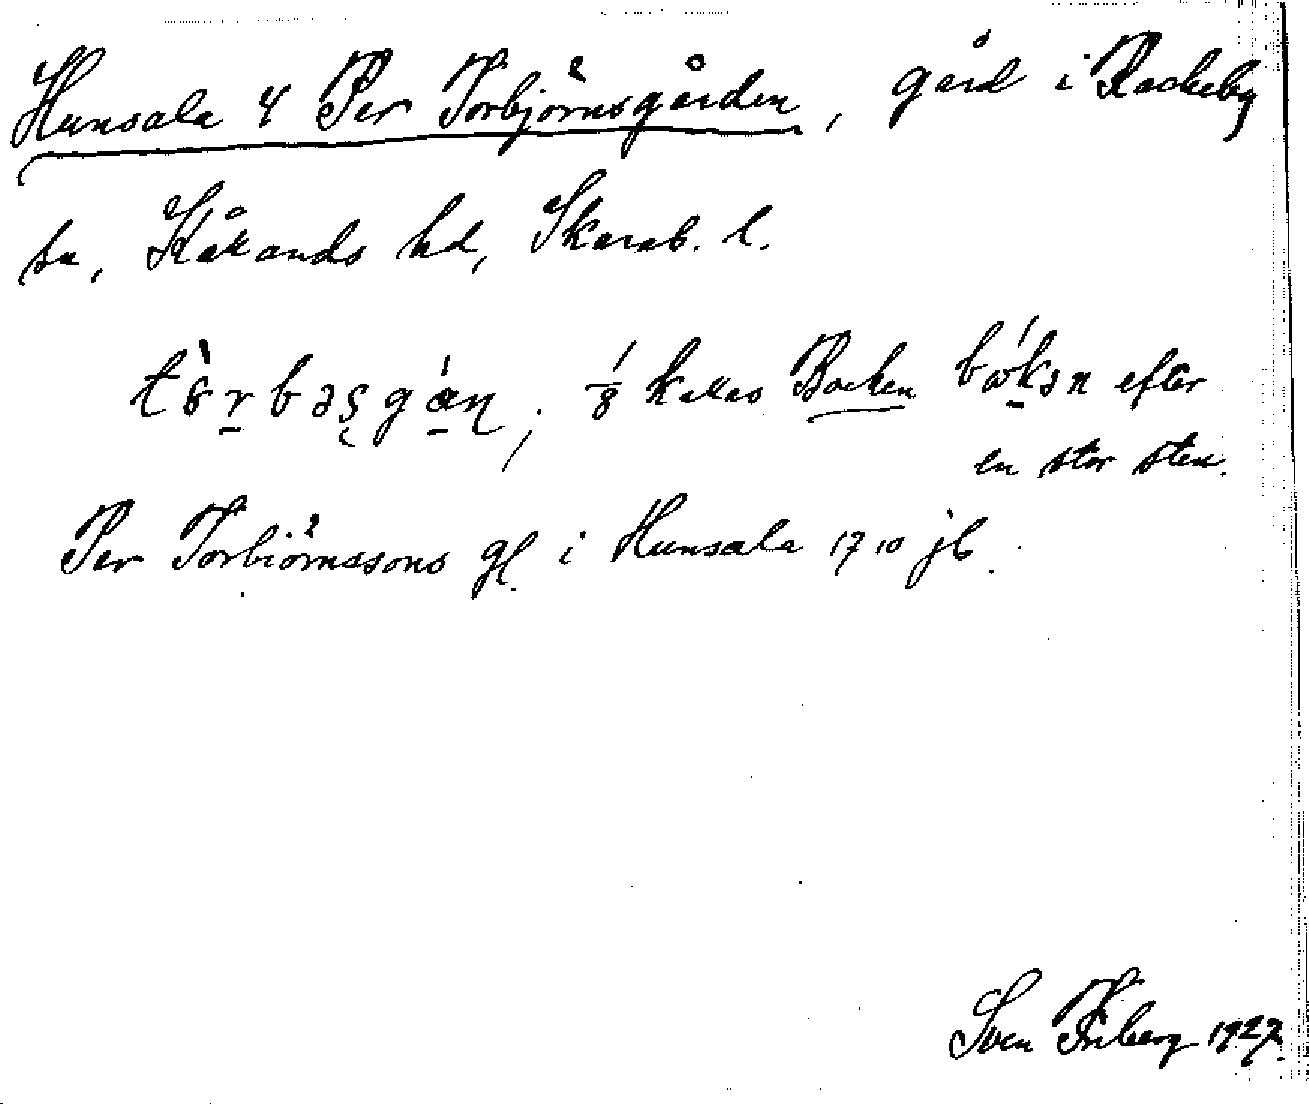 Hunsala 4 Per Torbjörnsgården, gård i Rackeby
sn, Kålands hd, Skarab. l.
1/8 kallas Backen efter
en stor sten.
Per Torbiörnssons gl. i Hunsala 1710 jb.
Sven Friberg 1927